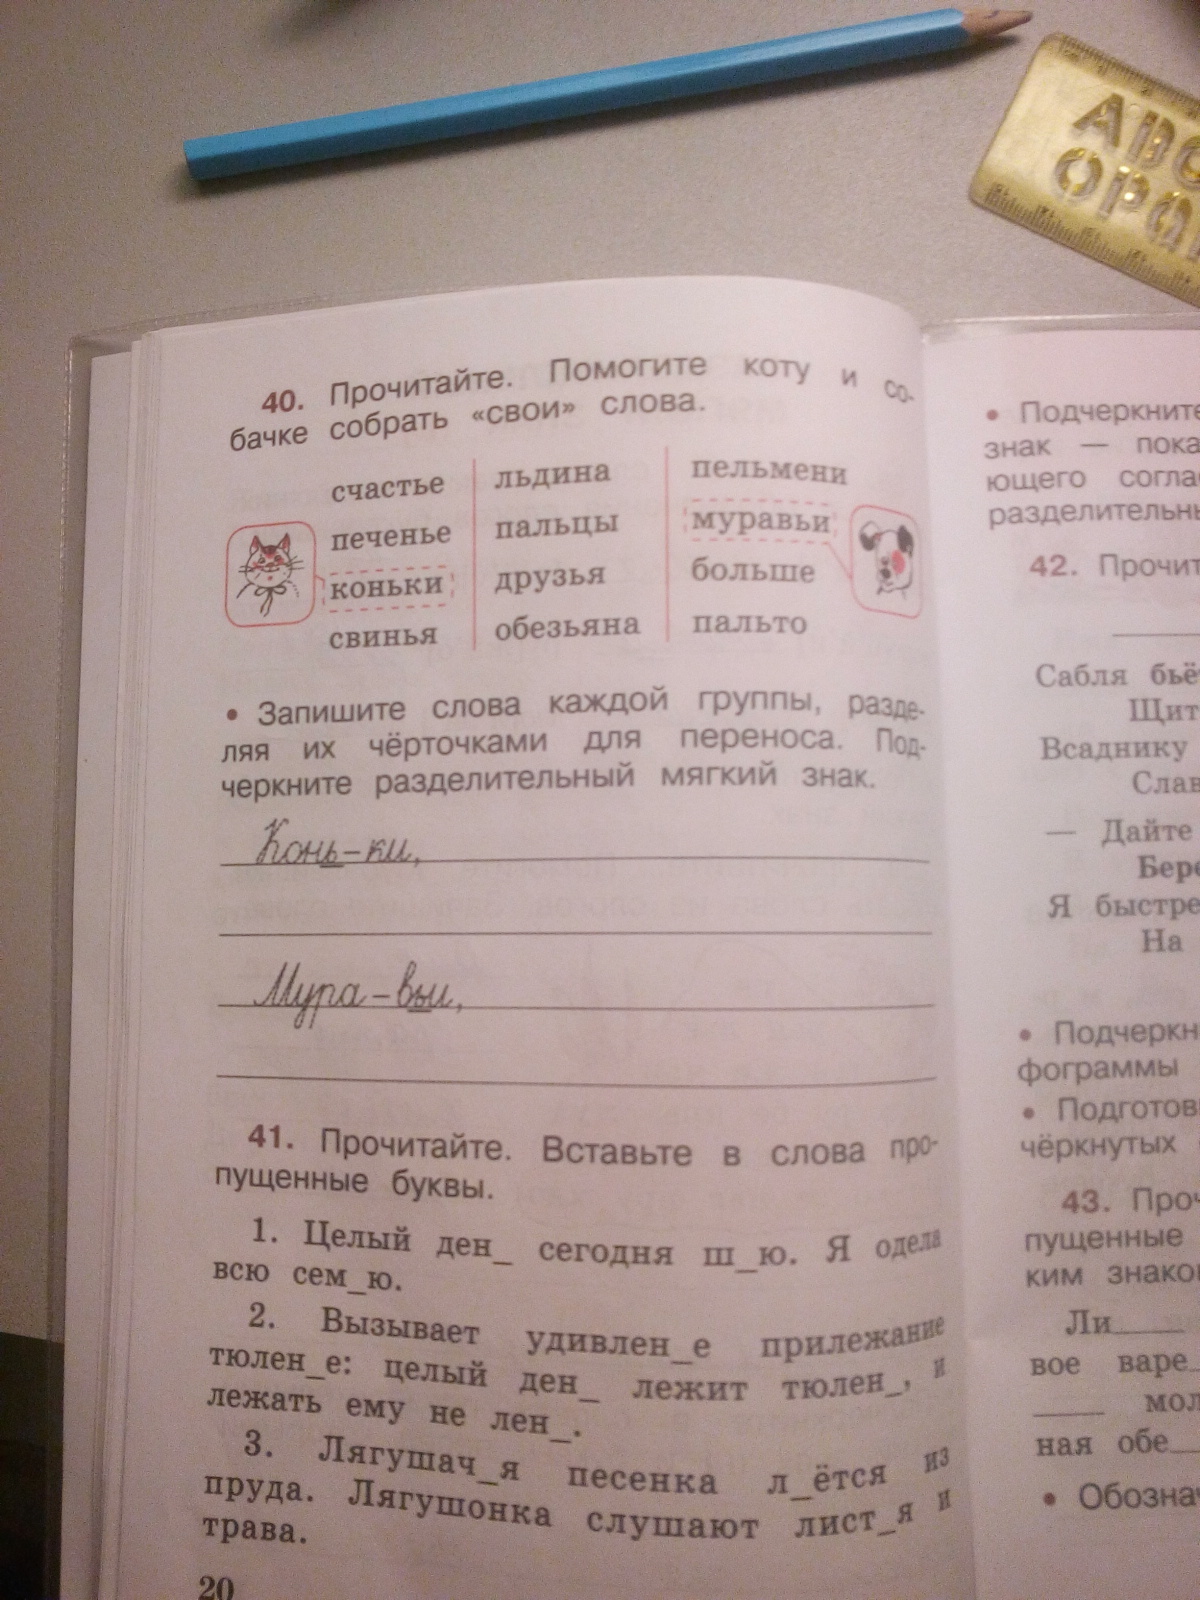 АВС
ОРА
40. Прочитайте. Помогите коту и со-
бачке собрать «свои» слова.
счастье льдина пельмени
печенье пальцы муравьи
коньки друзья больше
свинья обезьяна пальто
• Запишите слова каждой группы, разде-
ляя их чёрточками для переноса. Под-
черкните разделительный мягкий знак.
Конь-ки,
Мура-вьи,
41. Прочитайте. Вставьте в слова про-
пущенные буквы.
1. Целый ден_ сегодня ш_ю. Я одела
всю сем_ю.
2. Вызывает удивлен_е прилежание
тюлен_е: целый ден_ лежит тюлен_, и
лежать ему не лен_.
3. Лягушач_я песенка л_ётся из
пруда. Лягушонка слушают лист_я и
трава.
20
• Подчеркните
знак — пока
ющего соглас
разделительны
42. Прочит
Сабля бьё
Щит
Всаднику
Слав
— Дайте
Бере
Я быстре
На
• Подчеркн
фограммы
• Подготов
чёркнутых
43. Проч
пущенные
ким знако
Ли____
вое варе_
____ мол
ная обе_
• Обознач